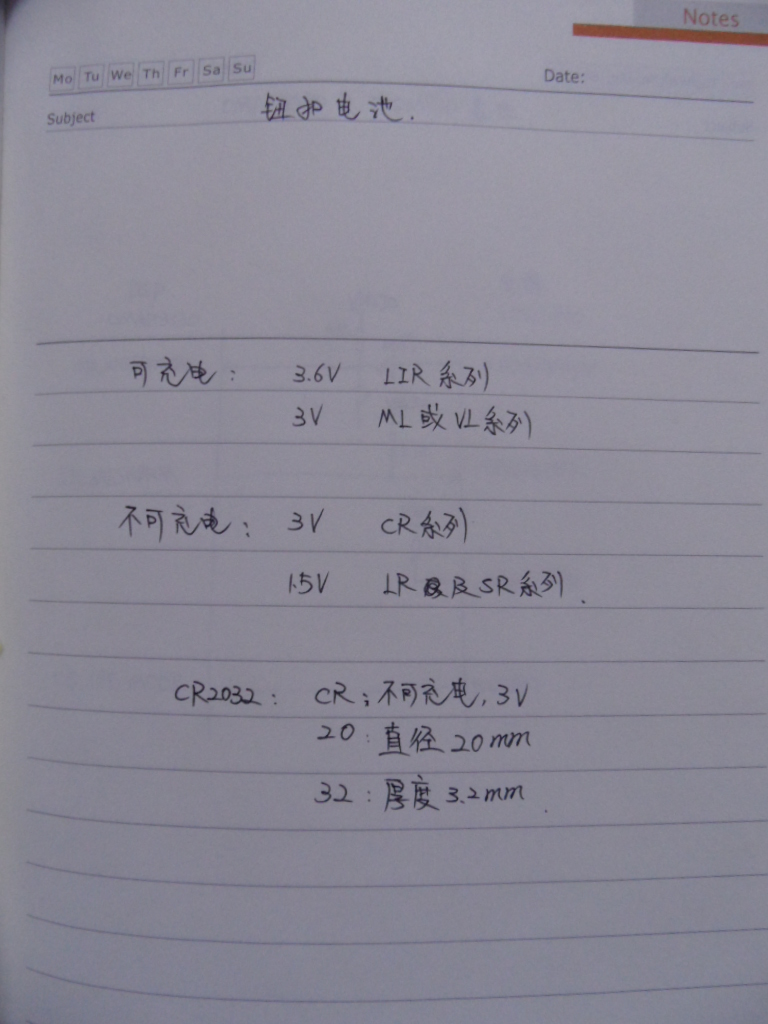 Notes
Mo Tu We Th Fr Sa Su
Date:
Subject 钮扣电池.
可充电: 3.6V LIR系列
3V ML或VL系列
不可充电: 3V CR系列
1.5V LR及SR系列.
CR2032: CR:不可充电,3V
20:直径20mm
32:厚度3.2mm.